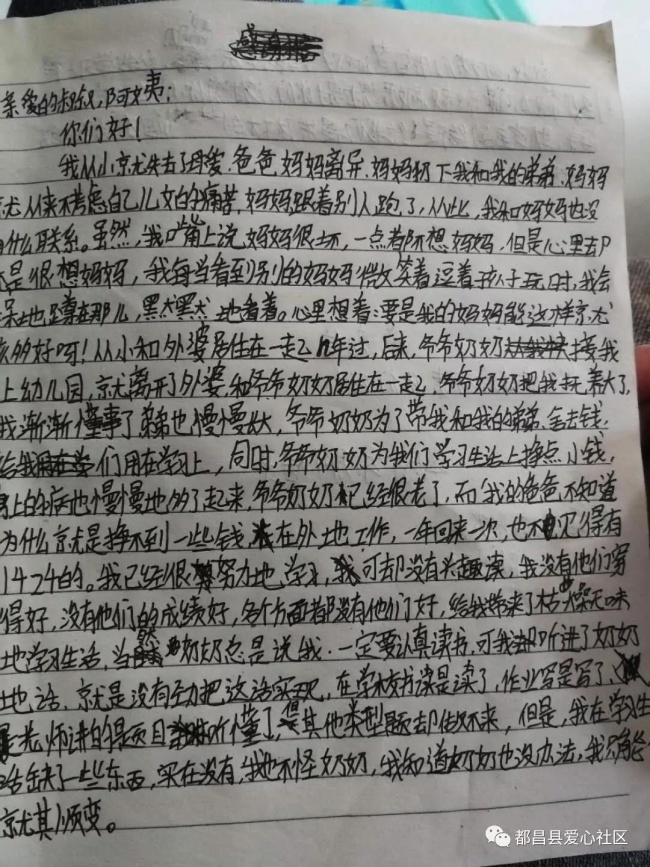 亲爱的叔叔,阿姨:
你们好!
我从小就失去了母爱.爸爸妈妈离异.妈妈扔下我和我的弟弟.妈妈
就从来不考虑自己儿女的痛苦,妈妈跟着别人跑了,从此,我和妈妈也没
有什么联系。虽然,我嘴上说,妈妈很坏,一点都不想妈妈,但是心里却
是很想妈妈,我每当看到别的妈妈微笑着逗着孩子玩时,我会
呆地蹲在那儿,默默地看着。心里想着:要是我的妈妈能这样就
该多好呀!从小和外婆居住在一起2年过,后来,爷爷奶奶接我
上幼儿园,就离开了外婆和爷爷奶奶居住在一起,爷爷奶奶把我抚养大了,
我渐渐懂事了弟弟也慢慢长大,爷爷奶奶为了带我和我的弟弟.拿去钱.
给我们用在学习上,同时,爷爷奶奶为我们学习生活上挣点小钱,
身上的病也慢慢地多了起来,爷爷奶奶已经很老了,而我的爸爸不知道
为什么就是挣不到一些钱,在外地工作,一年回来一次,也不见得有
1424的。我已经很努力地学习,可却没有兴趣读,我没有他们穿
得好,没有他们的成绩好,各个方面都没有他们好,给我带来了枯燥无味
地学习生活,当然奶奶总是说我.一定要认真读书,可我却听进了奶奶
地话,就是没有劲把这话实现,在学校书读是读了,作业写是写了,
老师讲的得题目听懂了,但其他类型题却做不来,但是,我在学习生
活缺了一些东西,实在没有,我也不怪奶奶,我知道奶奶也没办法,我只能
就其顺变。
都昌县爱心社区